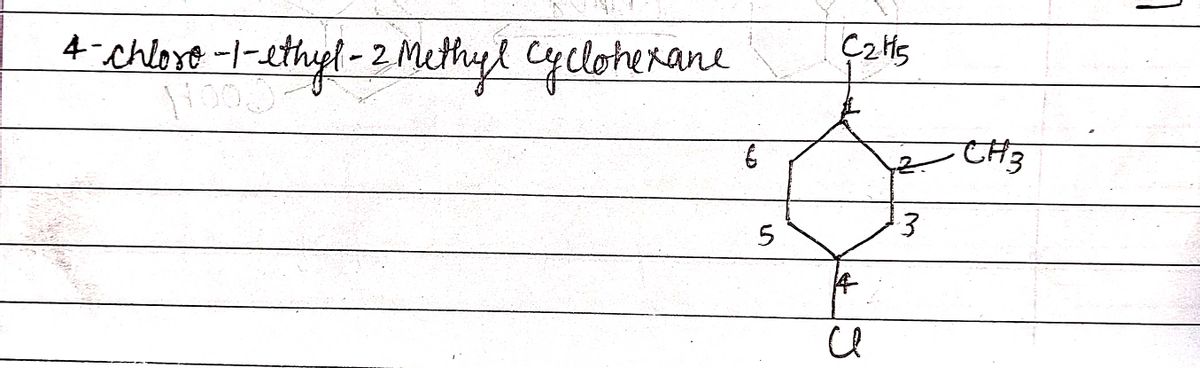 4-chloro-1-ethyl-2 Methyl Cyclohexane
C2H5
1
6
2
CH3
5
3
4
Cl